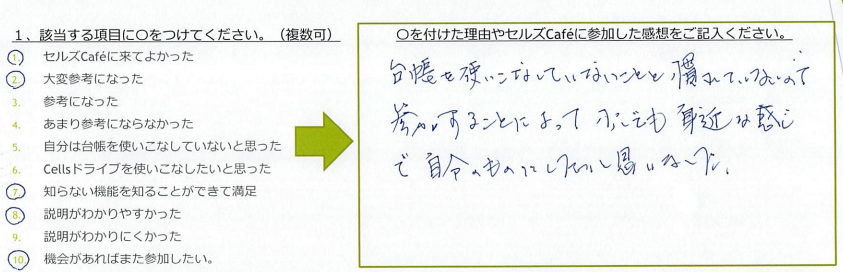 1、該当する項目に〇をつけてください。（複数可）
1. セルズCaféに来てよかった
2. 大変参考になった
3. 参考になった
4. あまり参考にならなかった
5. 自分は台帳を使いこなしていないと思った
6. Cellsドライブを使いこなしたいと思った
7. 知らない機能を知ることができて満足
8. 説明がわかりやすかった
9. 説明がわかりにくかった
10. 機会があればまた参加したい。
〇を付けた理由やセルズCaféに参加した感想をご記入ください。
台帳を使いこなしていないことと慣れていないので
参加することによって少しでも身近な感じ
で自分のものにしたいと思いました。